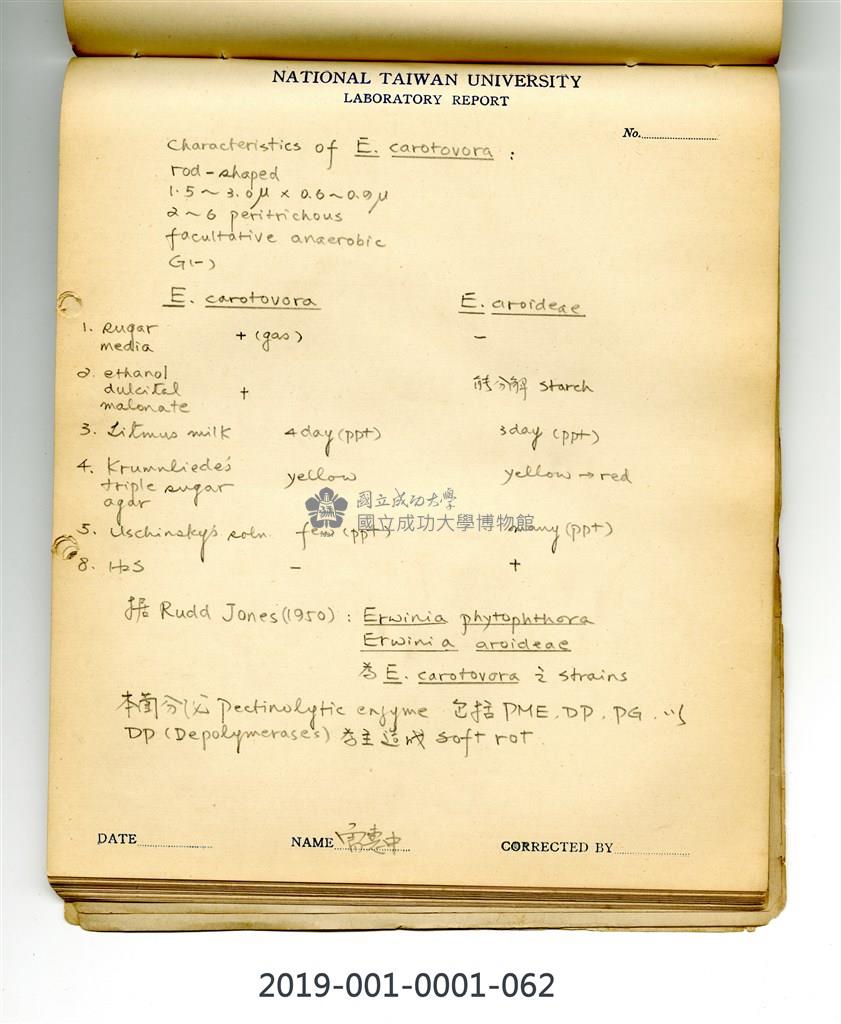 NATIONAL TAIWAN UNIVERSITY
LABORATORY REPORT
No.
Characteristics of E. carotovora :
rod-shaped
1.5 ~ 3.0 μ × 0.6 ~ 0.9 μ
2 ~ 6 peritrichous
facultative anaerobic
G(-)
E. carotovora E. aroideae
1. sugar media + (gas) -
2. ethanol dulcital malonate + 能分解 starch
3. Litmus milk 4 day (ppt) 3 day (ppt)
4. Krumnliede's triple sugar agar yellow yellow → red
5. Uschinsky's soln. few (ppt) many (ppt)
8. H2S - +
據 Rudd Jones (1950) : Erwinia phytophthora
Erwinia aroideae
為 E. carotovora 之 strains
本菌分泌 Pectinolytic enzyme 包括 PME, DP, PG, 以
DP (Depolymerases) 為主造成 soft rot.
國立成功大學
國立成功大學博物館
DATE NAME CORRECTED BY
2019-001-0001-062